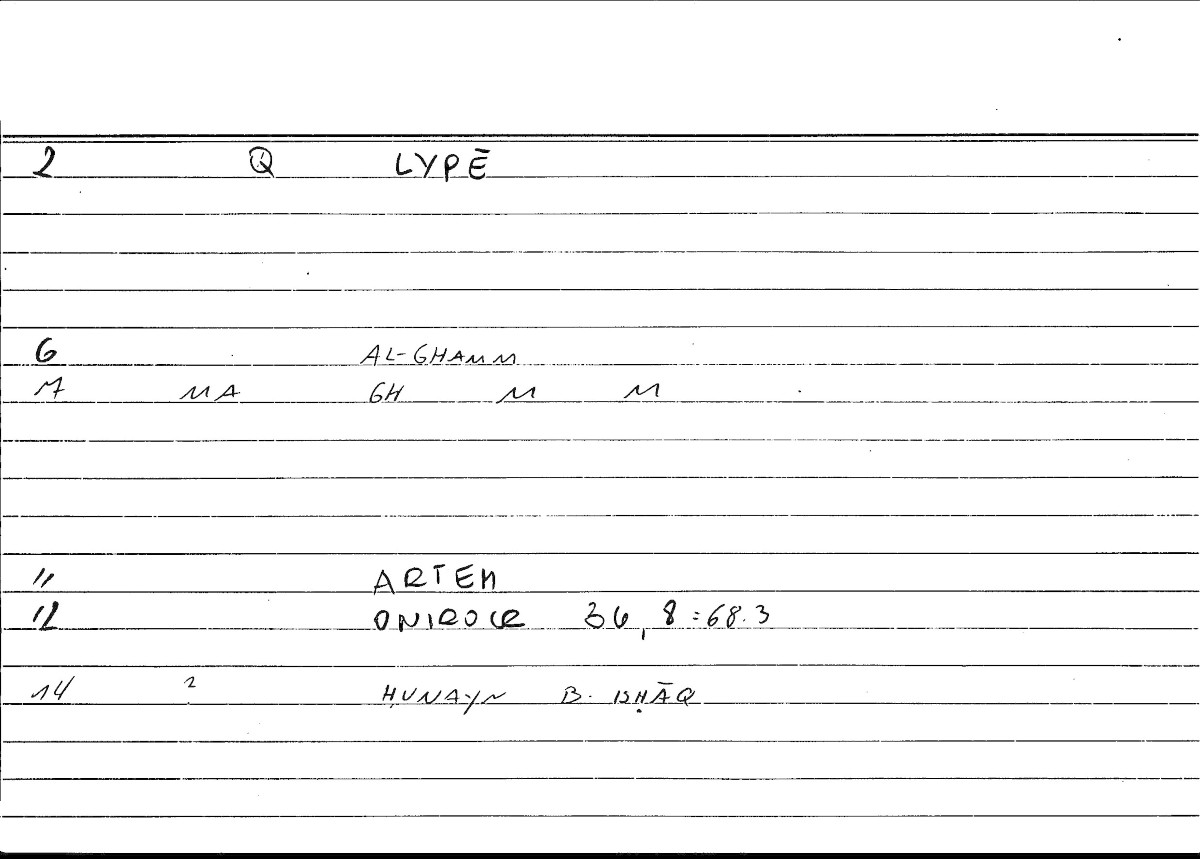 2 Q LYPĒ
6 AL-GHAMM
7 MA GH M M
11 ARTEM
12 ONIROCR 36,8=68.3
14 2 ḤUNAYN B. ISḤĀQ